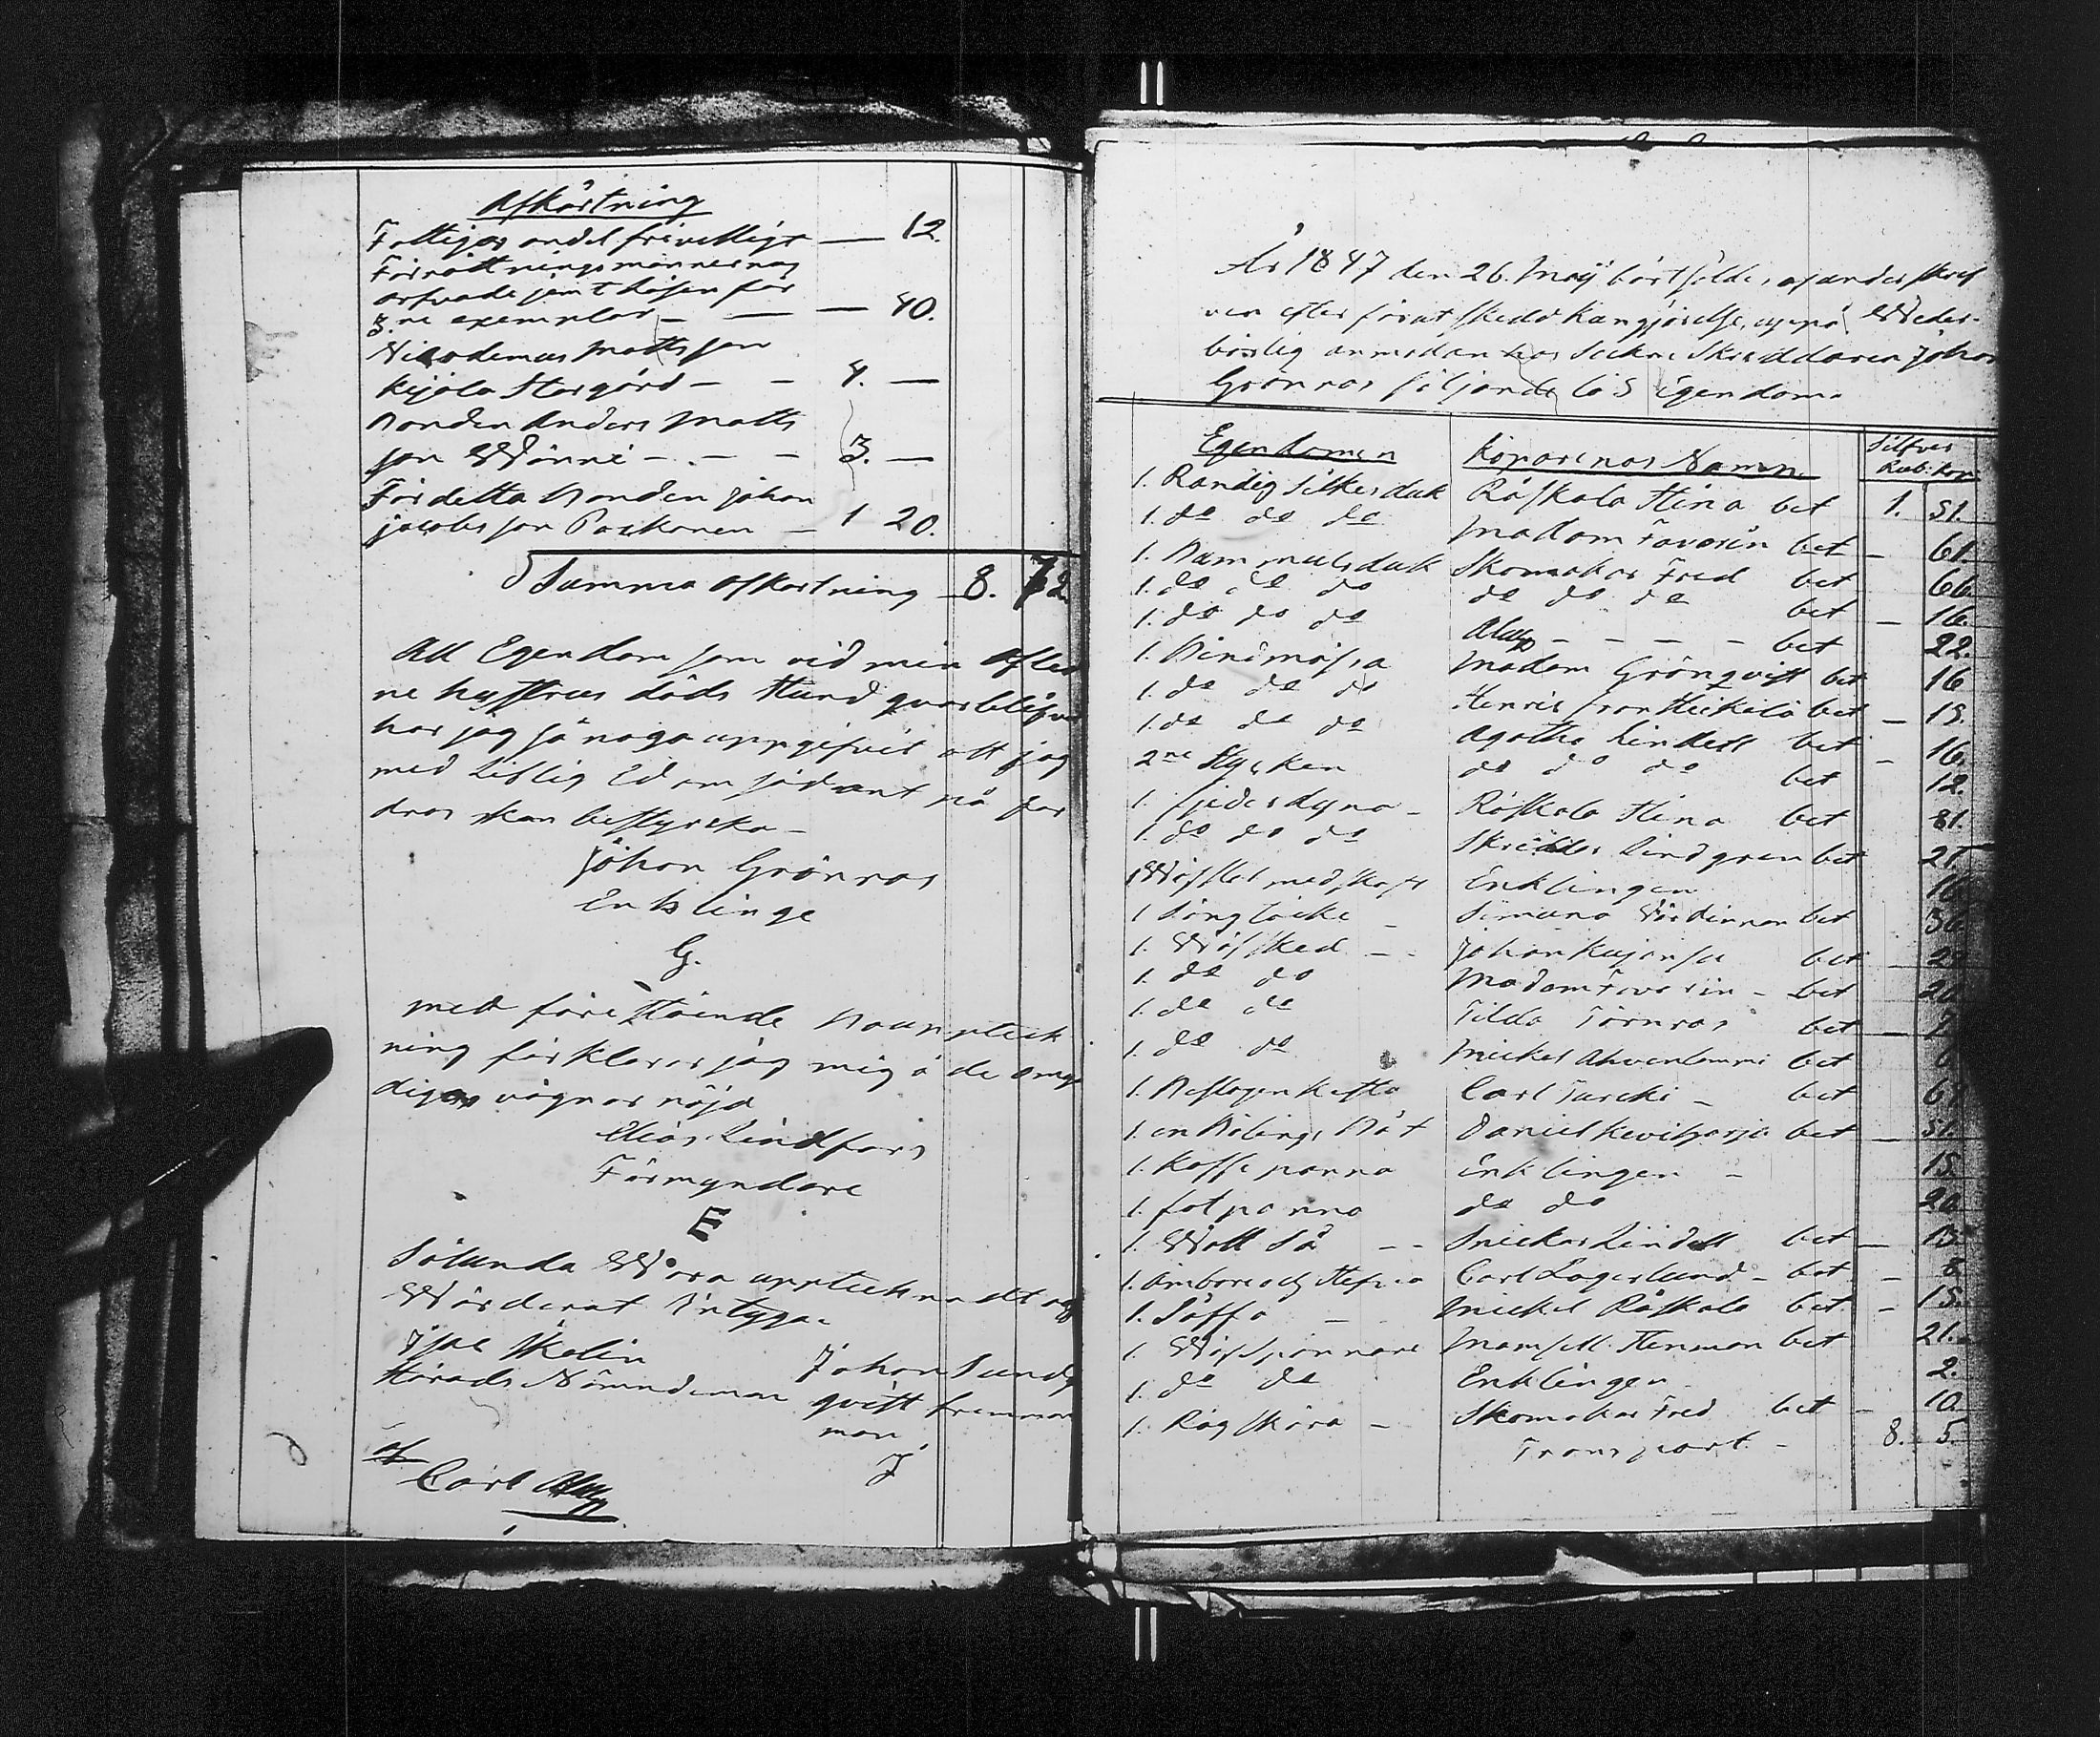 Afkårtning
Fattigas andel frivelligt — 12.
Förrättningsmännernas
arfvode jemt lösen för
3ne exemplar — — — 40.
Nicodemus Mattsson
Kejola Storgård — — 4. —
Bonden Anders Matts
son Wänni — — — 3. —
För detta Bonden Johan
Jacobsson Paskanen — 1 20.
Summa afkortning 8. 72.
All Egendom som vid min afled
ne hustrus döds stund qvarblifvit
har jag så noga uppgifvit att jag
med Liflig Ed om sådant på for
dras kan bestyrcka —
Johan Grönros
Enkling
G.
Med förestående Bouppteck
ning förklarar jag mig å de omyn
digas vägnar nöjd
Elias Lindfors
Förmyndare
E
Sålunda Wara upptecknadt och
Wärderat Intyga.
Isac Skelin
Härads Nämndeman
Johan Sund
qvist
man
J
af
Carl Alm
År 1847 den 26. Maij bortsåldes af underskref
ven efter förut skedd kungjörelse, uppå Weder-
börlig anmodan hos Sockne Skreddaren Johan
Grönros följande lös Egendom.
Egendomen Köparenas Namn Silfver Rub: Kop
1. Randig Silkesduk Räskala Stina bet 1. 51.
1. do do do Madam Favorin bet — 61.
1. Bammulsduk Skomakar Fred bet 66.
1. do do do do do do bet — 16.
1. do do do Alm — — — — bet 22.
1. Bindmössa Madam Grönqvist bet 16
1. do do do Henric från Heikelä bet — 15.
1. do do do Agatha Lindell bet — 16.
2ne Stycken do do do bet 12.
1. fjederdyna — Räskala Stina bet 81.
1. do do do Skredder Lindgren bet 25
1 med skaft Enklingen 10
1 Sängtäcke — Simuna bet 36.
1. Wäfsked — — Johan bet — 22
1. do do Madam Favorin — bet 20
1. do do Tilda Törnros bet —
1. do do Mickel Ahvenlammi bet 6
1. Beslagen Kista Carl Turcki — bet 67
1. en Båt Daniel bet — 51.
1. Kaffe panna Enklingen — 15.
1. fot panna do do 20
1. Watt Så — — Snickar Lindell bet — 13
1. Ämbare och Stäfva Carl Lagerlund — bet — 6
1. Såssa — Mickel Räskala bet — 15.
1. Wäfspännare Mamsell Stenman bet 21.
1. do do Enklingen 2.
1. Råg skära — Skomakar Fred bet — 10
Transport — 8. 5.